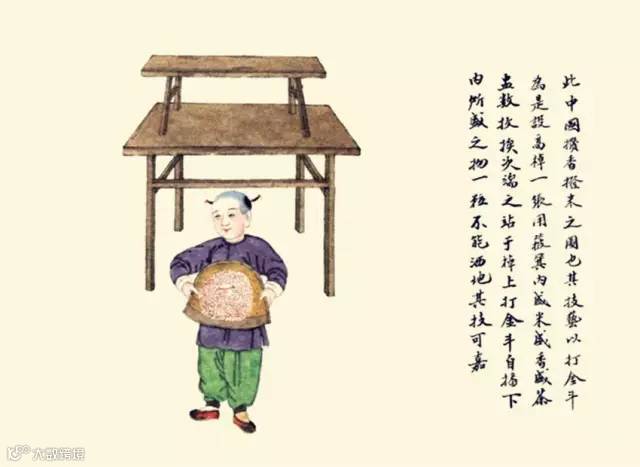 此中國攢香撥米之圖也其技藝以打金斗
為是設高棹一張用簸箕內盛米盛香盛茶
盅数枚挨次端之站于棹上打金斗自揚下
內所盛之物一粒不能洒地其技可嘉
大数跨境